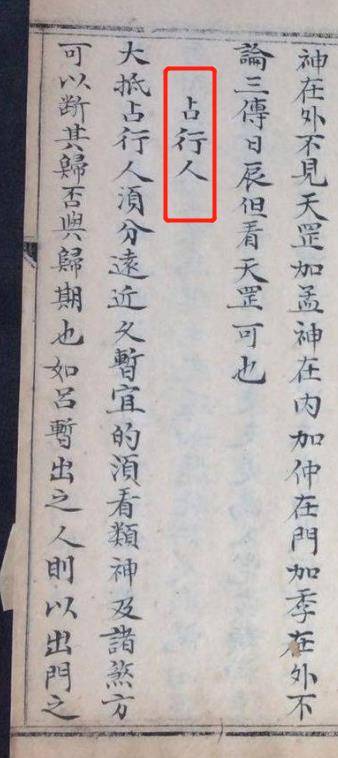 神在外不見天罡加孟神在内加仲在門加季在外不
論三傳日辰但看天罡可也
占行人
大抵占行人須分遠近久暫宜的須看類神及諸煞方
可以斷其歸否與歸期也如呂暫出之人則以出門之